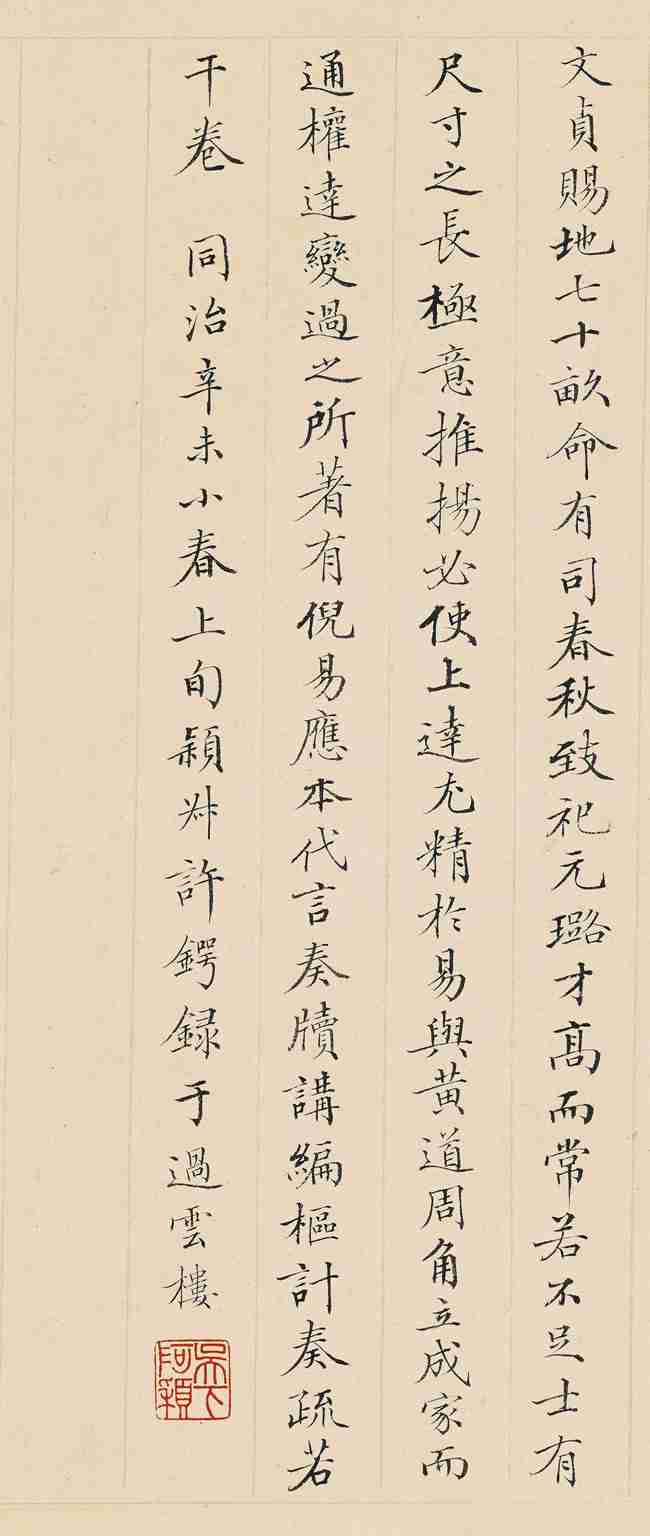 文貞賜地七十畝命有司春秋致祀元璐才髙而常若不足士有
尺寸之長極意推揚必使上達尤精於易與黄道周角立成家而
通權達變過之所著有倪易應本代言奏牘講編樞計奏疏若
干卷 同治辛未小春上旬穎叔許鍔録于過雲樓
吳下阿穎